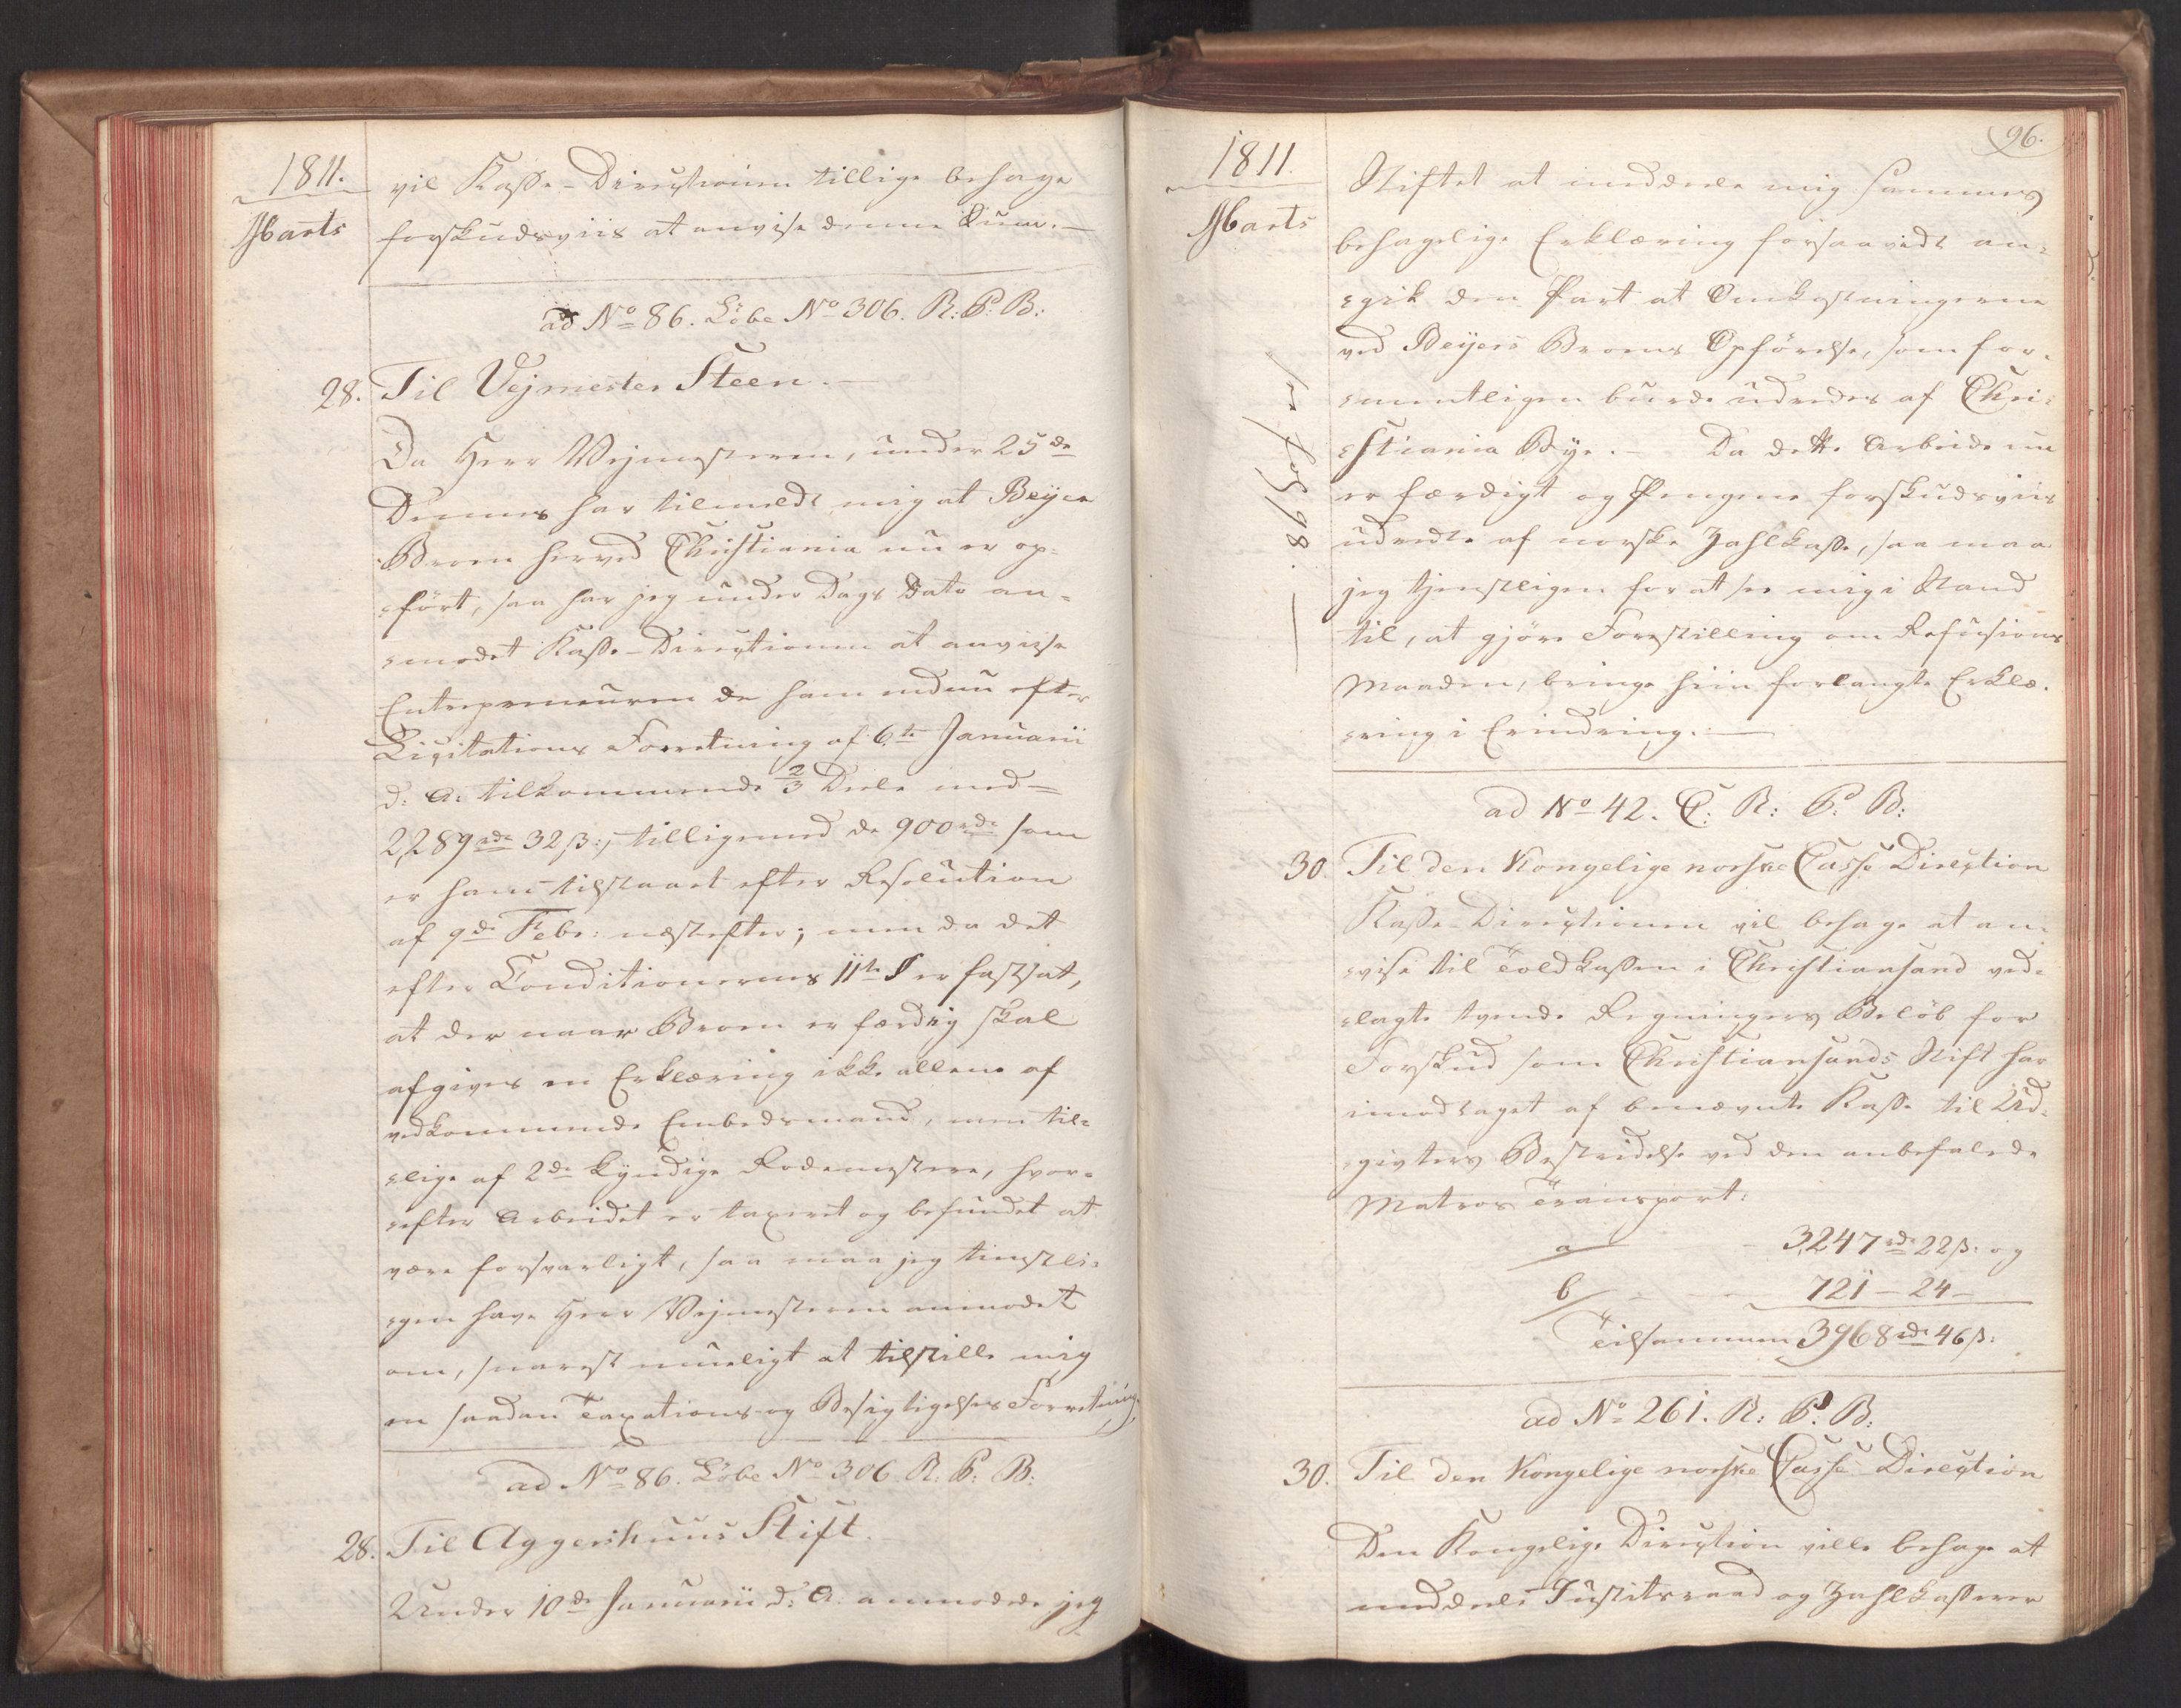 1811.
Marts
vil Kasse-Directionen tillige behage
forskudsviis at anvise denne Sum. —
ad No 86. Löbe No 306. R: P: B:
28. Til Vejmester Steen. —
Da Herr Vejmesteren, under 25de
Dennes har tilmeldt mig at Beyer
Broen herved Christiania nu er op-
ført, saa har jeg under Dags Dato an-
modet Kasse-Directionen at anvise
Entrepreneuren de ham endnu efter
Licitations Forretning af 6te Januarii
d: A: tilkommende 2/3 Deele med =
2289 rd 32 ß:, tilligemed de 900 rd som
er ham tilstaaet efter Resolution
af 9de Febr: næstefter; men da det
efter Conditionernes 11te § er fastsat,
at der naar Broen er færdig skal
afgives en Erklæring ikke allene af
vedkommende Embedsmand, men til-
lige af 2de kyndige Rodemestere, hvor-
efter Arbeidet er taxeret og befundet at
være forsvarligt, saa maa jeg tienstli-
gen have Herr Vejmesteren anmodet
om, snarest mueligt at tilstille mig
en saadan Taxations- og Besigtigelses Forretning
ad No 86. Löbe No 306. R. P: B:
28. Til Aggershuus Stift.
Under 10de Januarii d: A. anmodede jeg
96.
1811.
Marts
Stiftet at meddeele mig sammes
behagelige Erklæring forsaavidt an-
gik den Part at Omkostningerne
ved Beyers Broens Opförelse, som for-
mentligen burde udredes af Chri-
stiania Bye. — Da dette Arbeide nu
er færdigt og Pengene forskudsviis
udredte af norske Zahlkasse, saa maa
jeg tjenstligen for at see mig i Stand
til, at gjöre Forestilling om Refusions
Maaden, bringe hiin forlangte Erklæ-
ring i Erindring. —
se fol 98. —
ad No 42. C. R: P: B:
30. Til den Kongelige norske Casse Direction
Kasse-Directionen vil behage at an-
vise til Toldkassen i Christiansand ved-
lagte tvende Regningers Belöb for
Forskud som Christiansands Stift har
imodtaget af benævnte Kasse til Ud-
givters Bestridelse ved den anbefalede
Matros Transport:
a - 3247 rd 22 ß. og
b - - 721 — 24 —
Tilsammen 3968 rd 46 ß:
ad No 261. R: P: B:
30. Til den Kongelige norske Casse Direction
Den Kongelige Direction ville behage at
meddeele Justitsraad og Zahlkasserer